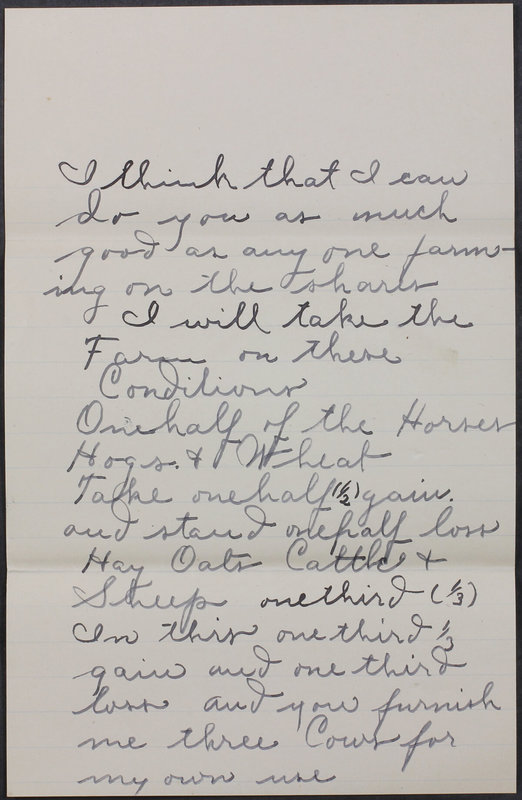 I think that I can
do you as much
good as any one farm-
ing on the shares
I will take the
Farm on these
Conditions
One half of the Horses
Hogs. & Wheat
Take one half (1/2) gain.
and stand one half loss
Hay Oats Cattle &
Sheep one third (1/3)
In this one third 1/3
gain and one third
loss and you furnish
me three Cows for
my own use